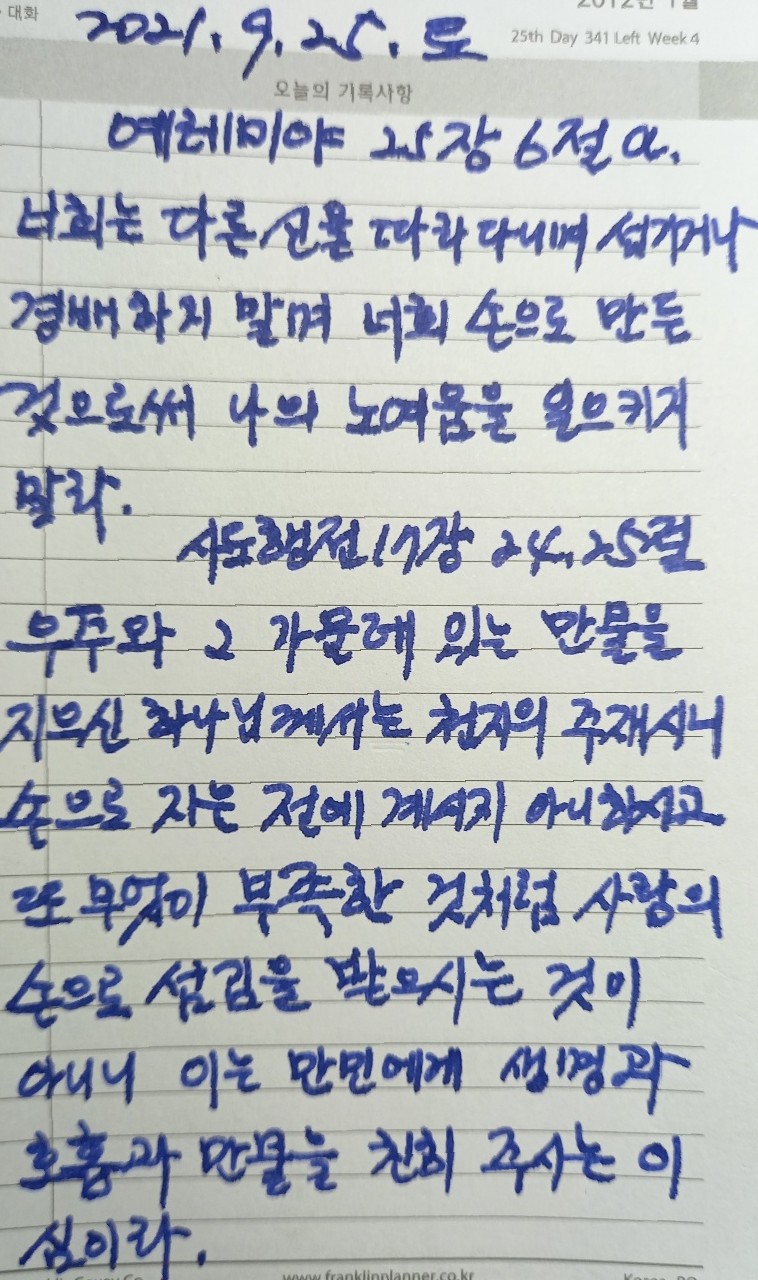 대화
2012년 1월
2021. 9. 25. 토
25th Day 341 Left Week 4
오늘의 기록사항
예레미야 25장 6절 a.
너희는 다른 신을 따라다니며 섬기거나
경배하지 말며 너희 손으로 만든
것으로써 나의 노여움을 일으키지
말라.
사도행전 17장 24, 25절
우주와 그 가운데 있는 만물을
지으신 하나님께서는 천지의 주재시니
손으로 지은 전에 계시지 아니하시고
또 무엇이 부족한 것처럼 사람의
손으로 섬김을 받으시는 것이
아니니 이는 만민에게 생명과
호흡과 만물을 친히 주시는 이
심이라.
www.franklinplanner.co.kr